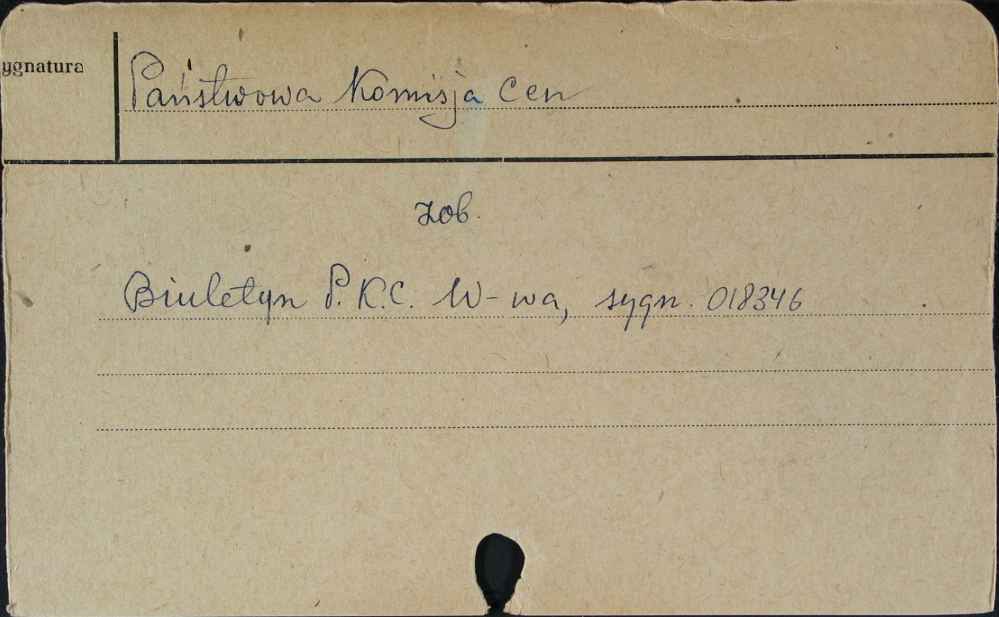 ygnatura
Państwowa Komisja Cen
zob.
Biuletyn P.K.C. W-wa, sygn. 018346